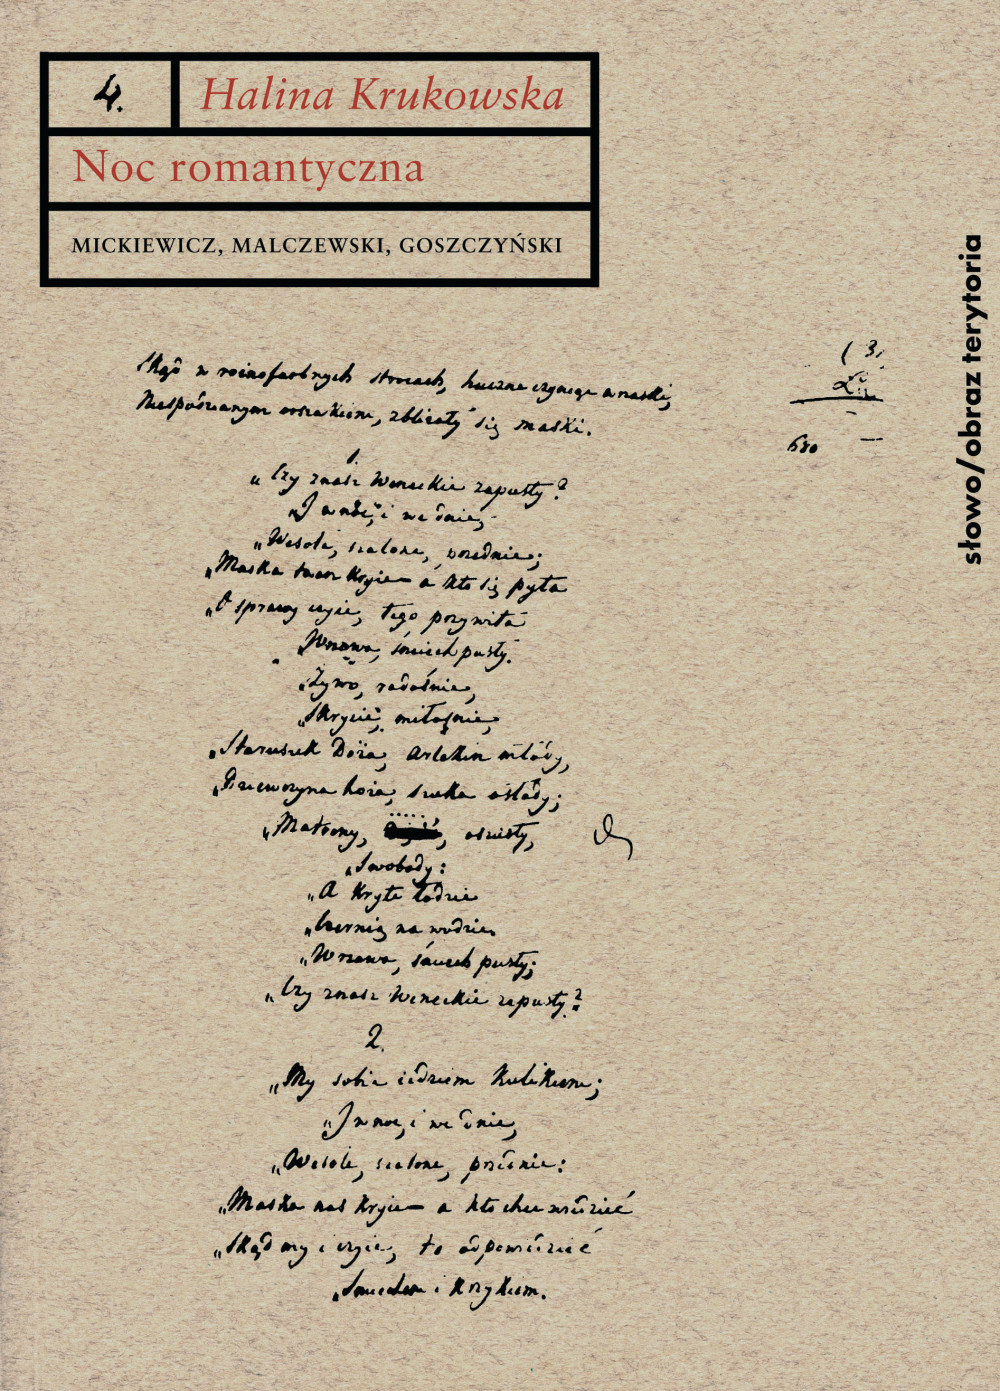 4.
Halina Krukowska
Noc romantyczna
MICKIEWICZ, MALCZEWSKI, GOSZCZYŃSKI
słowo/obraz terytoria
(3.
680 —
w rożnofarbnych strojach, huczne czyniąc wrzaski,
Niespodzianym orszakiem, zbliżały się maski.
1.
„Czy znasz Weneckie zapusty?
„I w noc, i we dnie,
„Wesołe, szalone, przednie;
„Maska twarz kryje — a kto się pyta
„O sprawy czyje, tego przywita
„Wrzawa, śmiech pusty.
„Żywo, radośnie,
„Skrycie, miłośnie,
„Staruszek Doża, Arlekin młody,
„Dziewczyna hoża, szuka osłody;
„Matrony, oszusty,
„Swobody:
„A kryte łodzie
„Czernią na wodzie.
„Wrzawa, śmiech pusty;
„Czy znasz Weneckie zapusty?
2.
„My sobie jedziem kulikiem;
„I w noc, i we dnie,
„Wesołe, szalone, przednie:
„Maska nas kryje — a kto chce wiedzieć
„Skąd my i czyje, to odpowiedzieć
„Śmiechem i krzykiem.